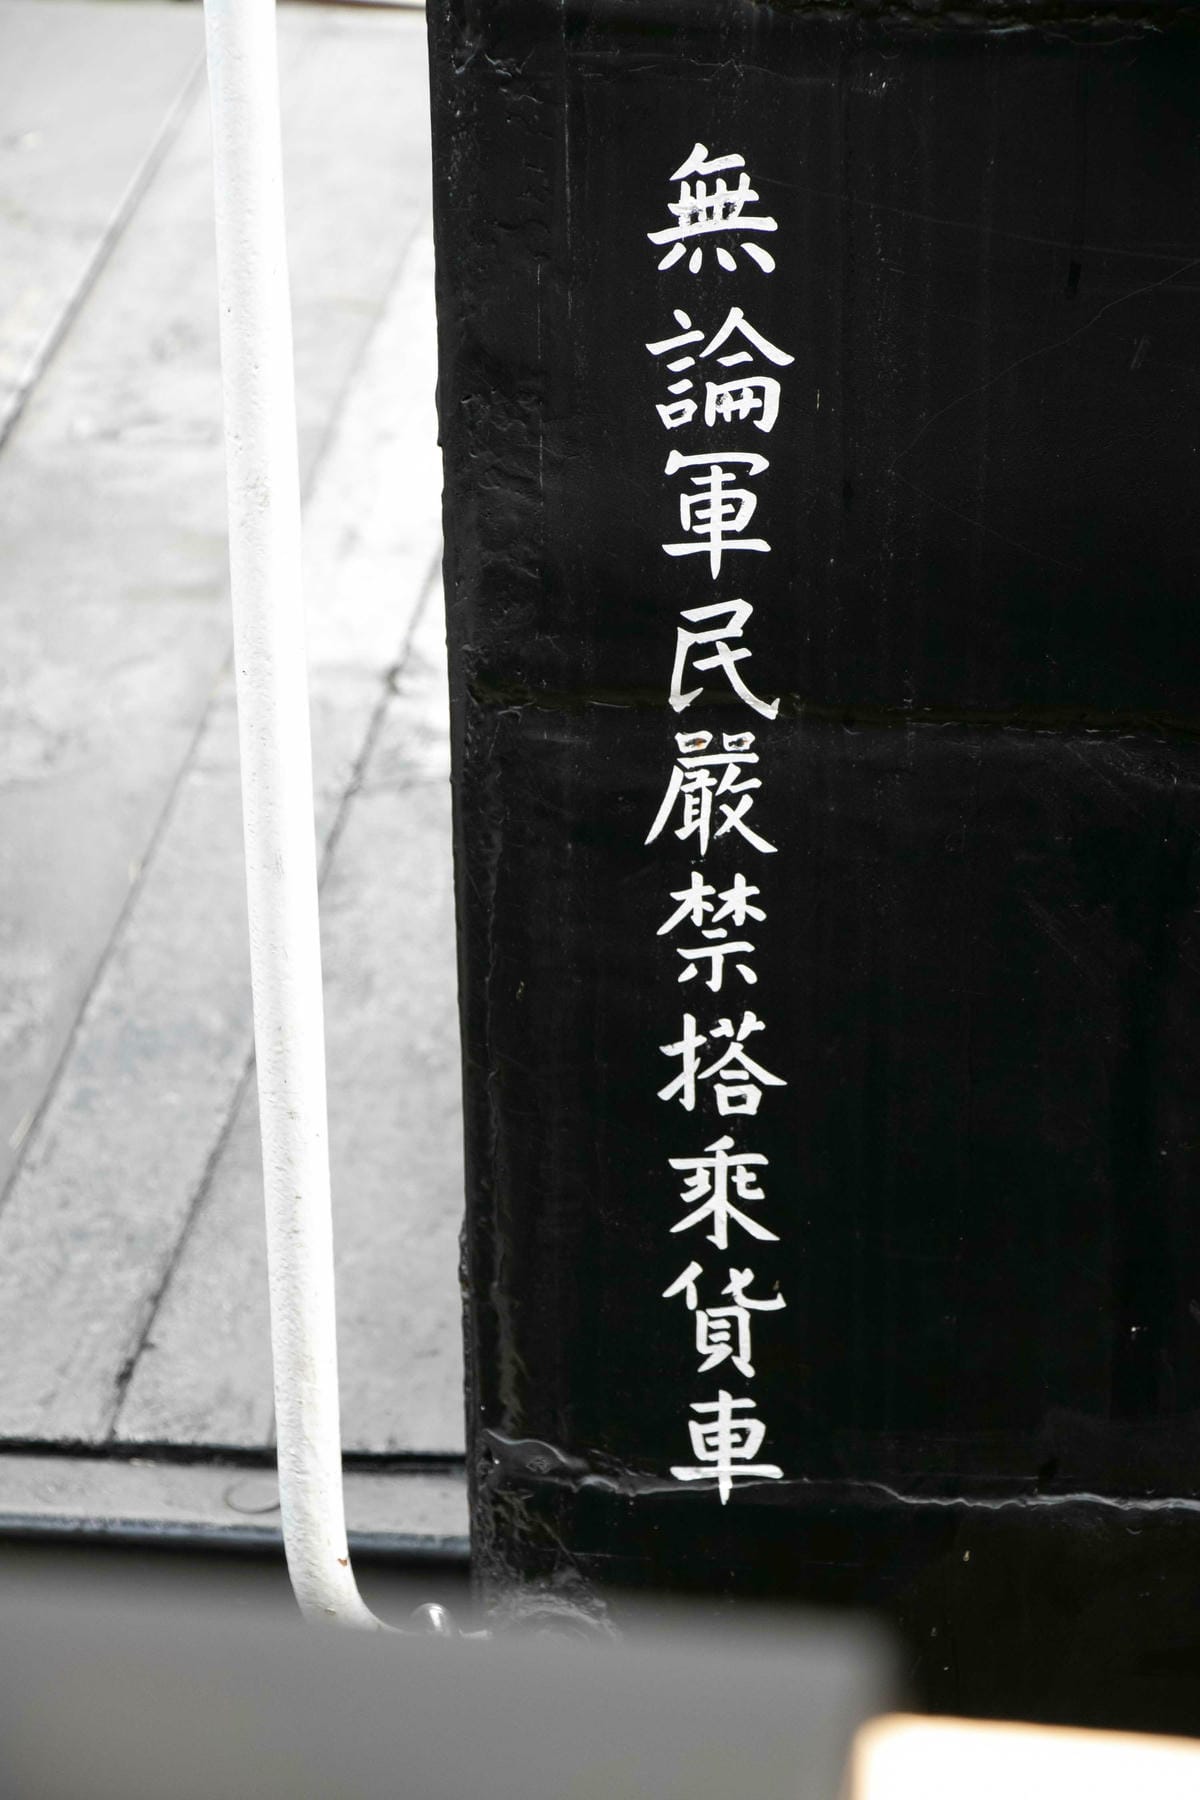 無論軍民嚴禁搭乘貨車